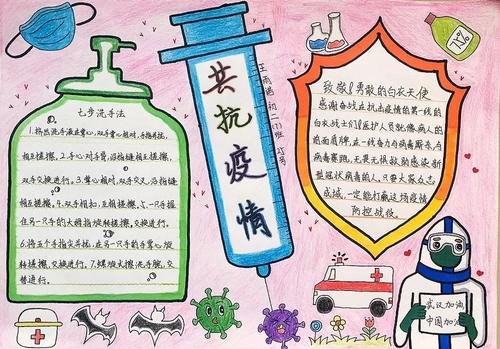 七步洗手法
1.挤出洗手液在掌心,双手掌心相对,手指并拢,
相互揉搓。2.手心对手背,沿指缝相互揉搓,
双手交换进行。3.掌心相对,双手交叉,沿指缝
相互揉搓。4.双手相扣,互相揉搓。5.一只手握
住另一只手的大拇指旋转揉搓,交换进行。
6.将五个手指尖并拢,在另一只手的手掌心旋
转揉搓,交换进行。7.螺旋式擦洗手腕,交
替进行。
共抗疫情
王雨
初二(1)班
号
致敬!勇敢的白衣天使
感谢奋战在抗击疫情的第一线的
白衣战士们!医护人员就像病人的
前面盾牌,在一线奋力与病毒厮杀,与
病毒赛跑,无畏无惧救助感染新
型冠状病毒的人。只要大家众志
成城,一定能打赢这场疫情
防控战役。
75%
武汉加油
中国加油